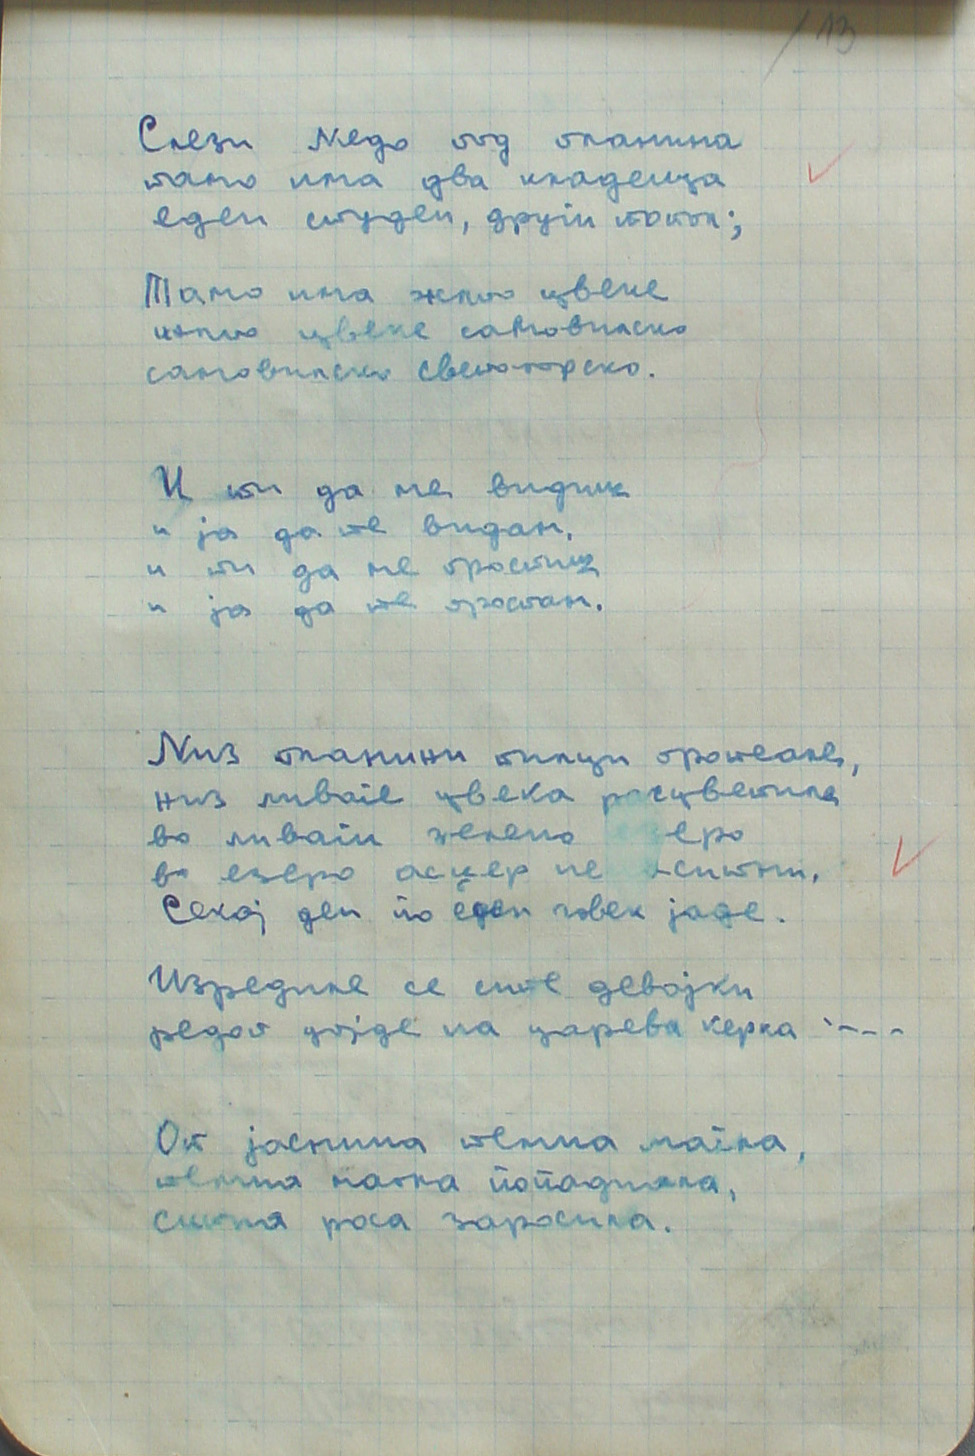 /13
Слези Недо под планина
тамо има два кладенца
еден студен, другій топол;
Тамо има жлто цвеке
жлто цвеке самовилско
самовилско светогорско.
И ти да ме видиш
и ја да те видам,
и ти да ме простиш
и ја да те простам.
Низ планини пилци протеале,
низ ливаіе цвека расцветиле
во ливаіи зелено езеро
во езеро аскер не
Секој ден по еден човек јаде.
Изредиле се сите девојки
редот дојде на царева керка ----
От јаснина темна магла,
темна магла попаднала,
ситна роса заросила.